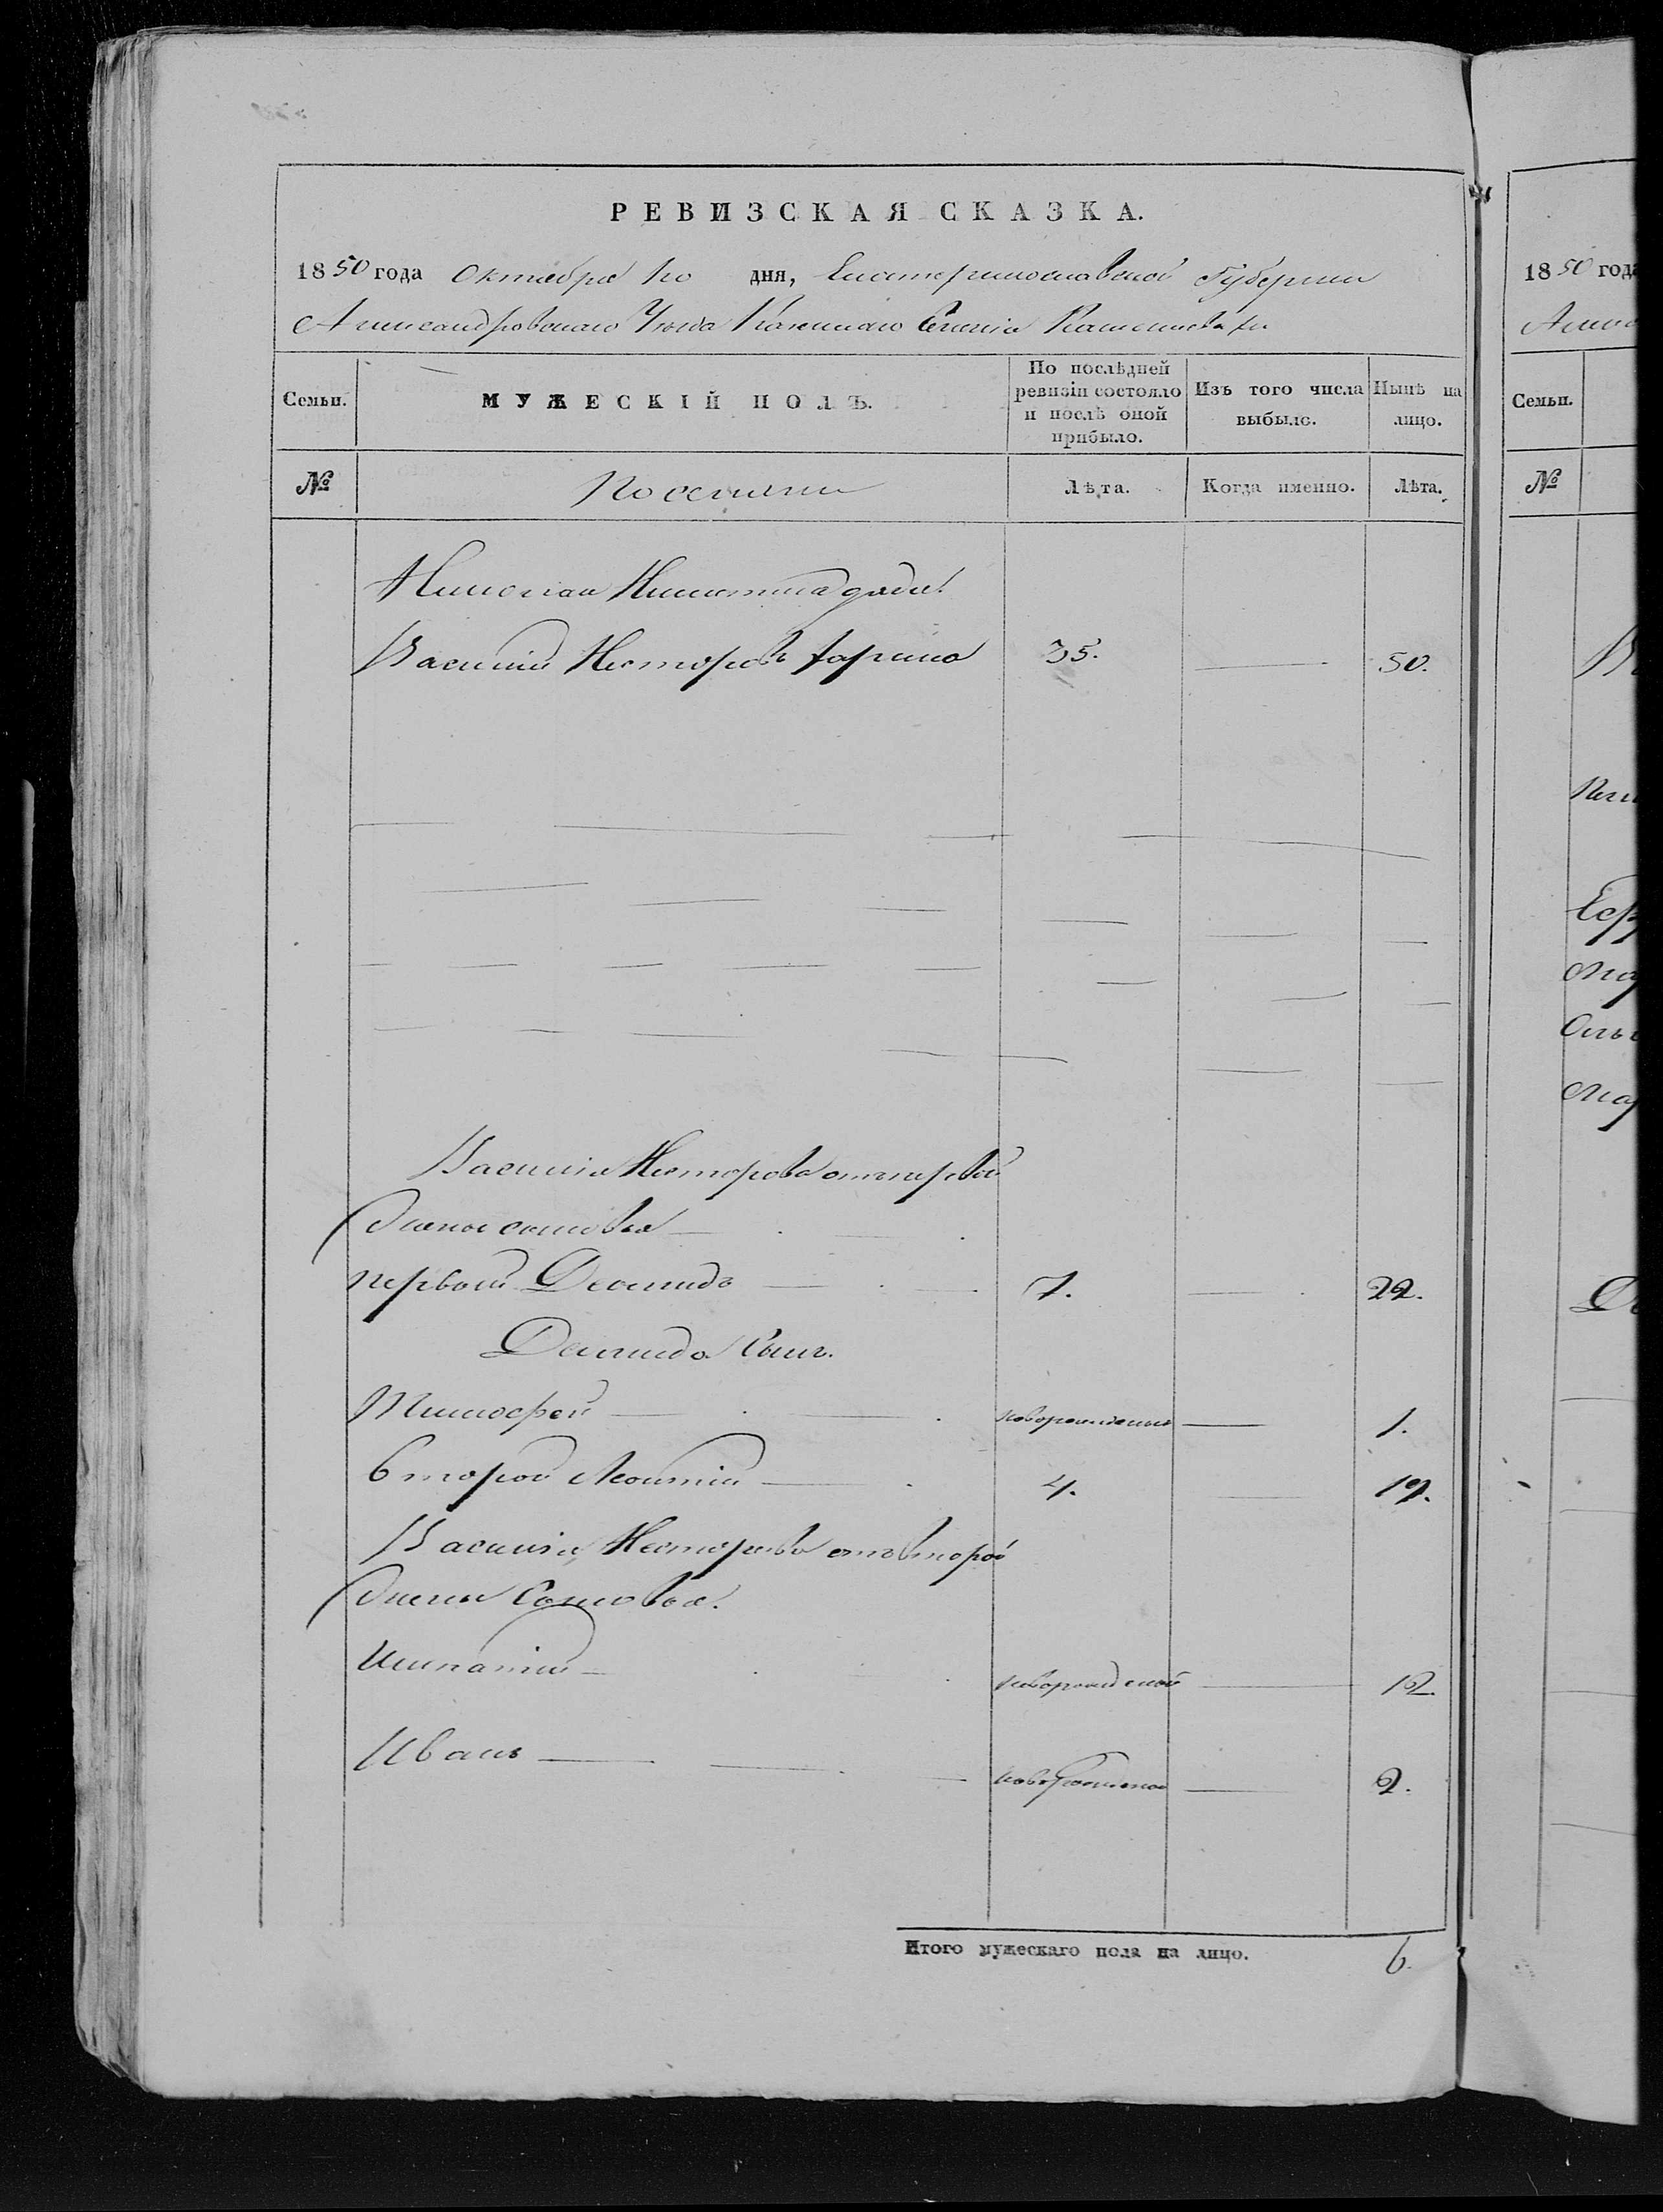 РЕВИЗСКАЯ СКАЗКА.
1850 года Октября дня, Екатеринославской Губернии
Александровскаго Уѣзда Казеннаго Селенія
Семьи.
МУЖЕСКІЙ ПОЛЪ.
По послѣдней ревизіи состояло и послѣ оной прибыло.
Изъ того числа выбыло.
Нынѣ на лицо.
№
Лѣта.
Когда именно.
Лѣта.
Никитина дядя
Василій Несторовъ 35. 50.
Василія Несторова отъ первой
жены сыновья
первой Демидъ 7. 22.
Демида Сынъ.
Тимофей новорожденный 1.
второй Леонтій 4. 19.
Василія Несторова отъ второй
жены Сыновья.
Игнатій новорожденной 12.
Иванъ новорожденной 2.
Итого мужескаго пола на лицо. 6.
1850 года
Семьи.
№